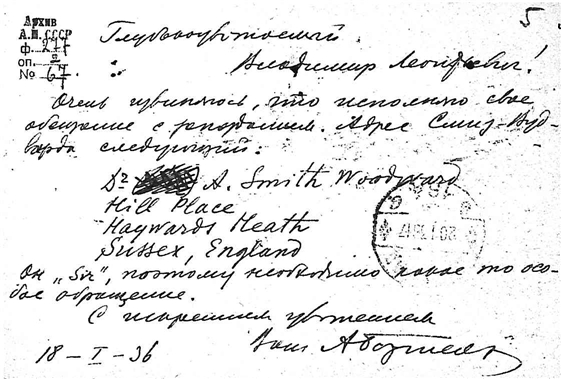 Архив
А.Н. СССР
ф. 277
оп. 2
№ 67
5
Глубокоуважаемый
Владимир Леонтьевич!
Очень извиняюсь, что исполняю свое
обещание с запозданием. Адрес Смиз-Вуд-
варда следующий:
Dr A. Smith Woodward
Hill Place
Haywards Heath
Sussex, England
Он „Sir”, поэтому необходимо какое то осо-
бое обращение.
С искренним уважением
Ваш
18-I-36